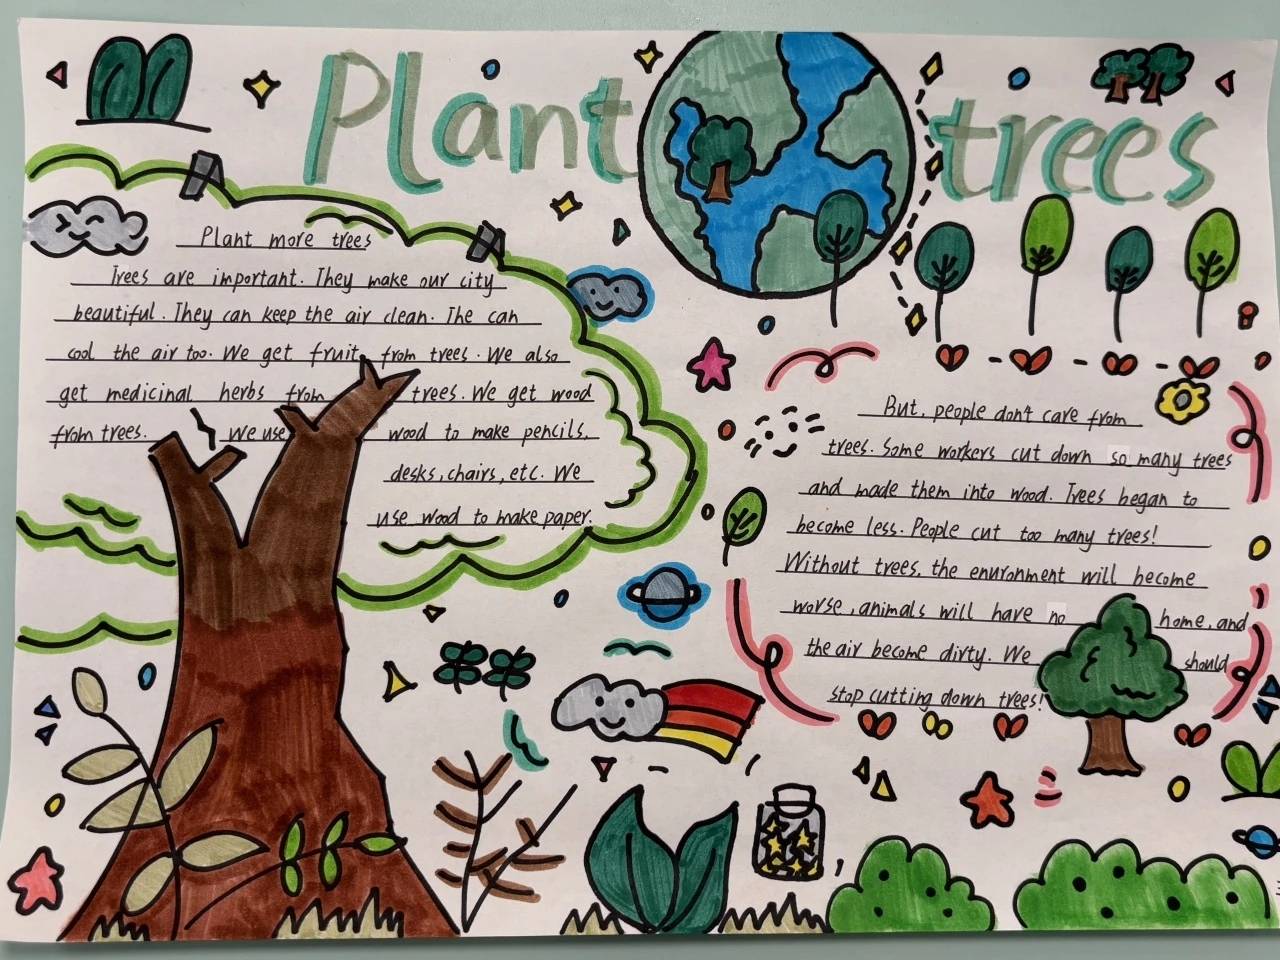 Plant trees
Plant more trees
Trees are important. They make our city
beautiful. They can keep the air clean. The can
cool the air too. We get fruit from trees. We also
get medicinal herbs from trees. We get wood
from trees. We use wood to make pencils,
desks, chairs, etc. We
use wood to make paper.
But, people don't care from
trees. Some workers cut down so many trees
and made them into wood. Trees began to
become less. People cut too many trees!
Without trees, the enuronment will become
worse, animals will have no home, and
the air become dirty. We should
stop cutting down trees!